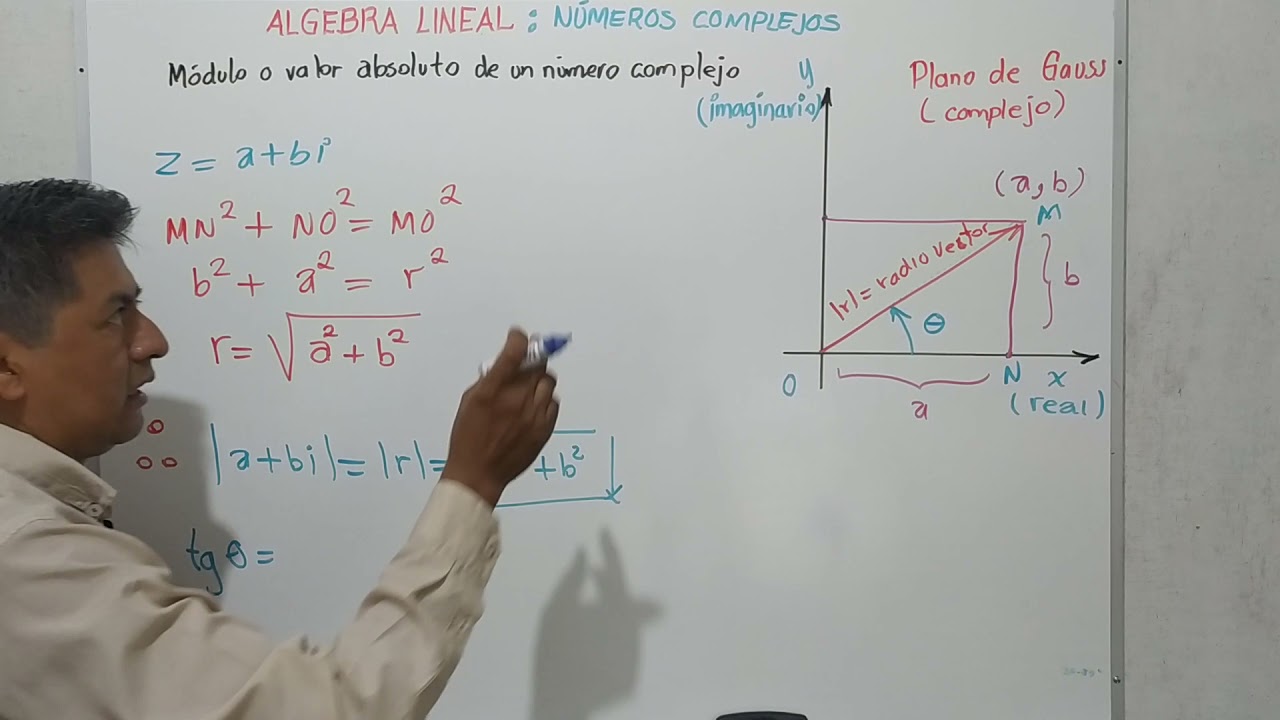 ALGEBRA LINEAL : NÚMEROS COMPLEJOS
Módulo o valor absoluto de un número complejo
z = a+bi
MN² + NO² = MO²
b² + a² = r²
r = √a² + b²
∴ |a+bi| = |r| = +b²
tg θ =
Plano de Gauss
(complejo)
y
(imaginario)
(a,b)
M
|r| = radio vector
b
θ
O
N
x
a
(real)